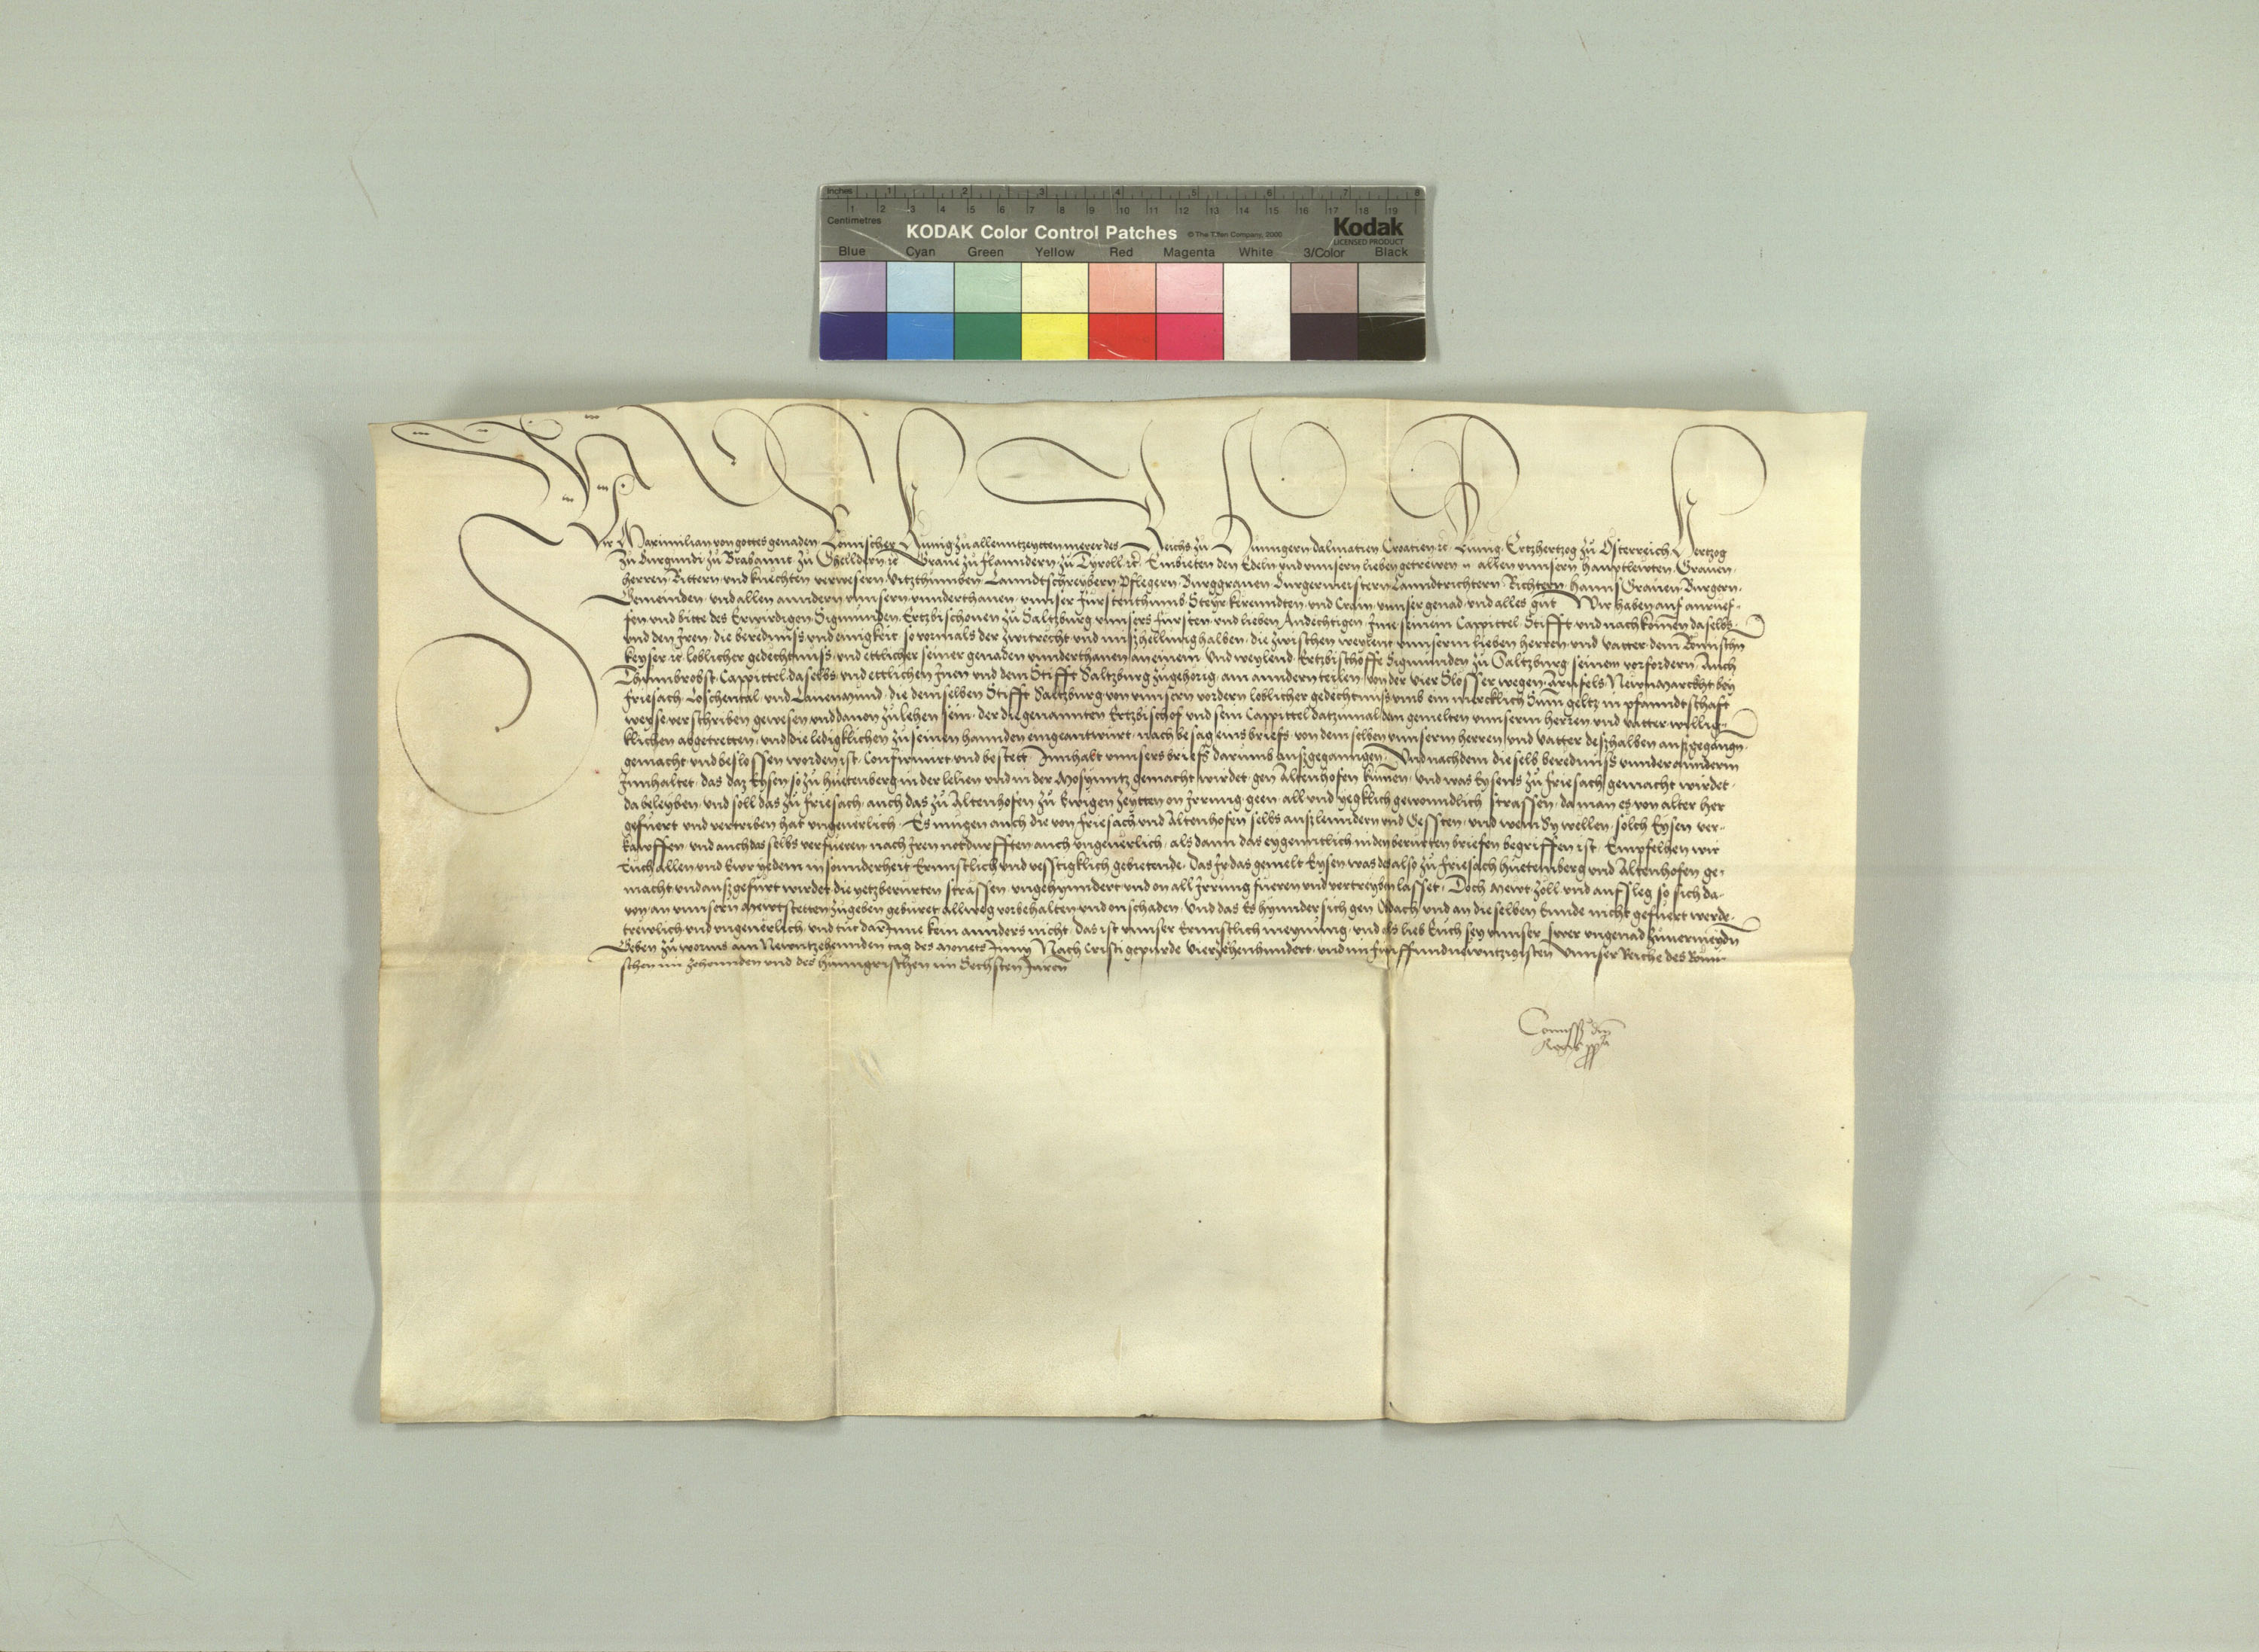 Inches 1 2 3 4 5 6 7 8
Centimetres 1 2 3 4 5 6 7 8 9 10 11 12 13 14 15 16 17 18 19
KODAK Color Control Patches © The Tiffen Company, 2000 Kodak
LICENSED PRODUCT
Blue Cyan Green Yellow Red Magenta White 3/Color Black
Wir Maximilian von gottes genaden Romischer Kunig zu allenntzeytten merer des Reichs zu Hunngern Dalmatien Croatien rc Kunig Ertzhertzog zu Osterreich Hertzog
zu Burgundi zu Brabannt zu Ghelldern rc Graue zu Flanndern zu Tyroll rc Embieten den Edeln vnd vnnsern lieben getrewen N allen vnnsern hauptlewten Grauen
herren Rittern vnd knechten verwesern Vitzthumben Lanndtschreybern Pflegern Burggrauen Burgermeistern Lanndtrichtern Richtern hanns Grauen Burgern
Gemeinden vnd allen anndern vnnsern vnnderthanen vnnser Fürstenthumb Steyr kerenndten vnd Crain vnnser genad vnd alles gut Wir haben auf anruef-
fen vnd bitte des Erwirdigen Sigmunden Ertzbischouen zu Saltzburg vnnsers fursten vnd lieben Andechtigen Ime seinem Cappittel Stifft vnd nachkomen daselbs
vnd den Iren die berednuss vnd ainigkeit so vormals der zwitrecht vnd misshellung halben die zwischen weylent vnnserm lieben herren vnd vatter dem Romischn
keyser rc loblicher gedechtnuss vnd ettlicher seiner genaden vnnderthanen an einem Vnd weylend Ertzbischoffe Sigmunden zu Saltzburg seinem vorfordern Auch
Thumbrobst Cappittel daselbs vnd ettlichen Inen vnd dem Stifft Saltzburg zugehorig am anndern teilen von der vier Slosser wegen Arnfels Newmarckht bey
Friesach Loschental vnd Lauenmund die demselben Stifft Saltzburg von vnnsern vordern loblicher gedechtnuss vmb ein mercklich Sum geltz in pfanndtschaft
weyse verschriben gewesen vnd dauon zulehen sein der die genannten Ertzbischof vnd sein Cappittel datzumal dem gemelten vnnserm herren vnd vatter willig-
klichen abgetretten vnd die ledigklichen zu seinen hannden eingeantwurt nach besag eins briefs von demselben vnnserm herren vnd vatter desshalben aussgegangn
gemacht vnd beslossen worden ist Confirmirt vnd bestett Innhalt vnnsers briefs darumb aussgegangen Vnd nachdem dieselb berednuss vnnder annderm
Innhaltet das daz Eysen so zu huetenberg in der lelien vnd in der Mosynnitz gemacht wirdet gen Altenhofen kumen vnd was Eysens zu Friesach gemacht wirdet
da beleyben vnd soll das zu Friesach auch das zu Altenhofen zu Ewigen zeytten on Irrung geen all vnd yegklich gewonndlich strassen da man es von alter her
gefuert vnd vertriben hat vngeuerlich Es mugen auch die von Friesach vnd Altenhofen selbs ausslenndern vnd Gessten vnd wem Sy wellen solch Eysen ver-
kawffen vnd auch das selbs verfueren nach Iren notdurfften auch vngeuerlich als dann das eygenntlich in den berurten briefen begriffen ist Empfelhen wir
Euch allen vnd Ewr yedem in sonnderheit Ernnstlich vnd vesstigklich gebietende Das Ir das gemelt Eysen was des also zu Friesach huetemberg vnd Altenhofen ge-
macht vnd aussgefurt wirdet die yetzberurten strassen vngehynndert vnd on all Irrung fueren vnd vertreyben lasset Doch Mewt Zoll vnd aufsleg so sich da-
von an vnnsern Mewtstetten zugeben geburet allweg vorbehalten vnd on schaden Vnd das Es hynndersich gen vnd an dieselben Ennde nicht gefuert werde
trewlich vnd vngeuerlich vnd tut darInne kein annders nicht das ist vnnser Ernnstlich meynung vnd als lieb Euch sey vnnser swer vngenad zuuermeydn
Geben zu Worms am Newntzehennden tag des Monets Juny Nach Cristi gepurde Viertzehenhundert vnd im Funffundnewntzigisten Vnnser Reiche des Romi-
schen im Zehennden vnd des hunngrischen im Sechsten Jaren
Comissio dni
Regis ppa